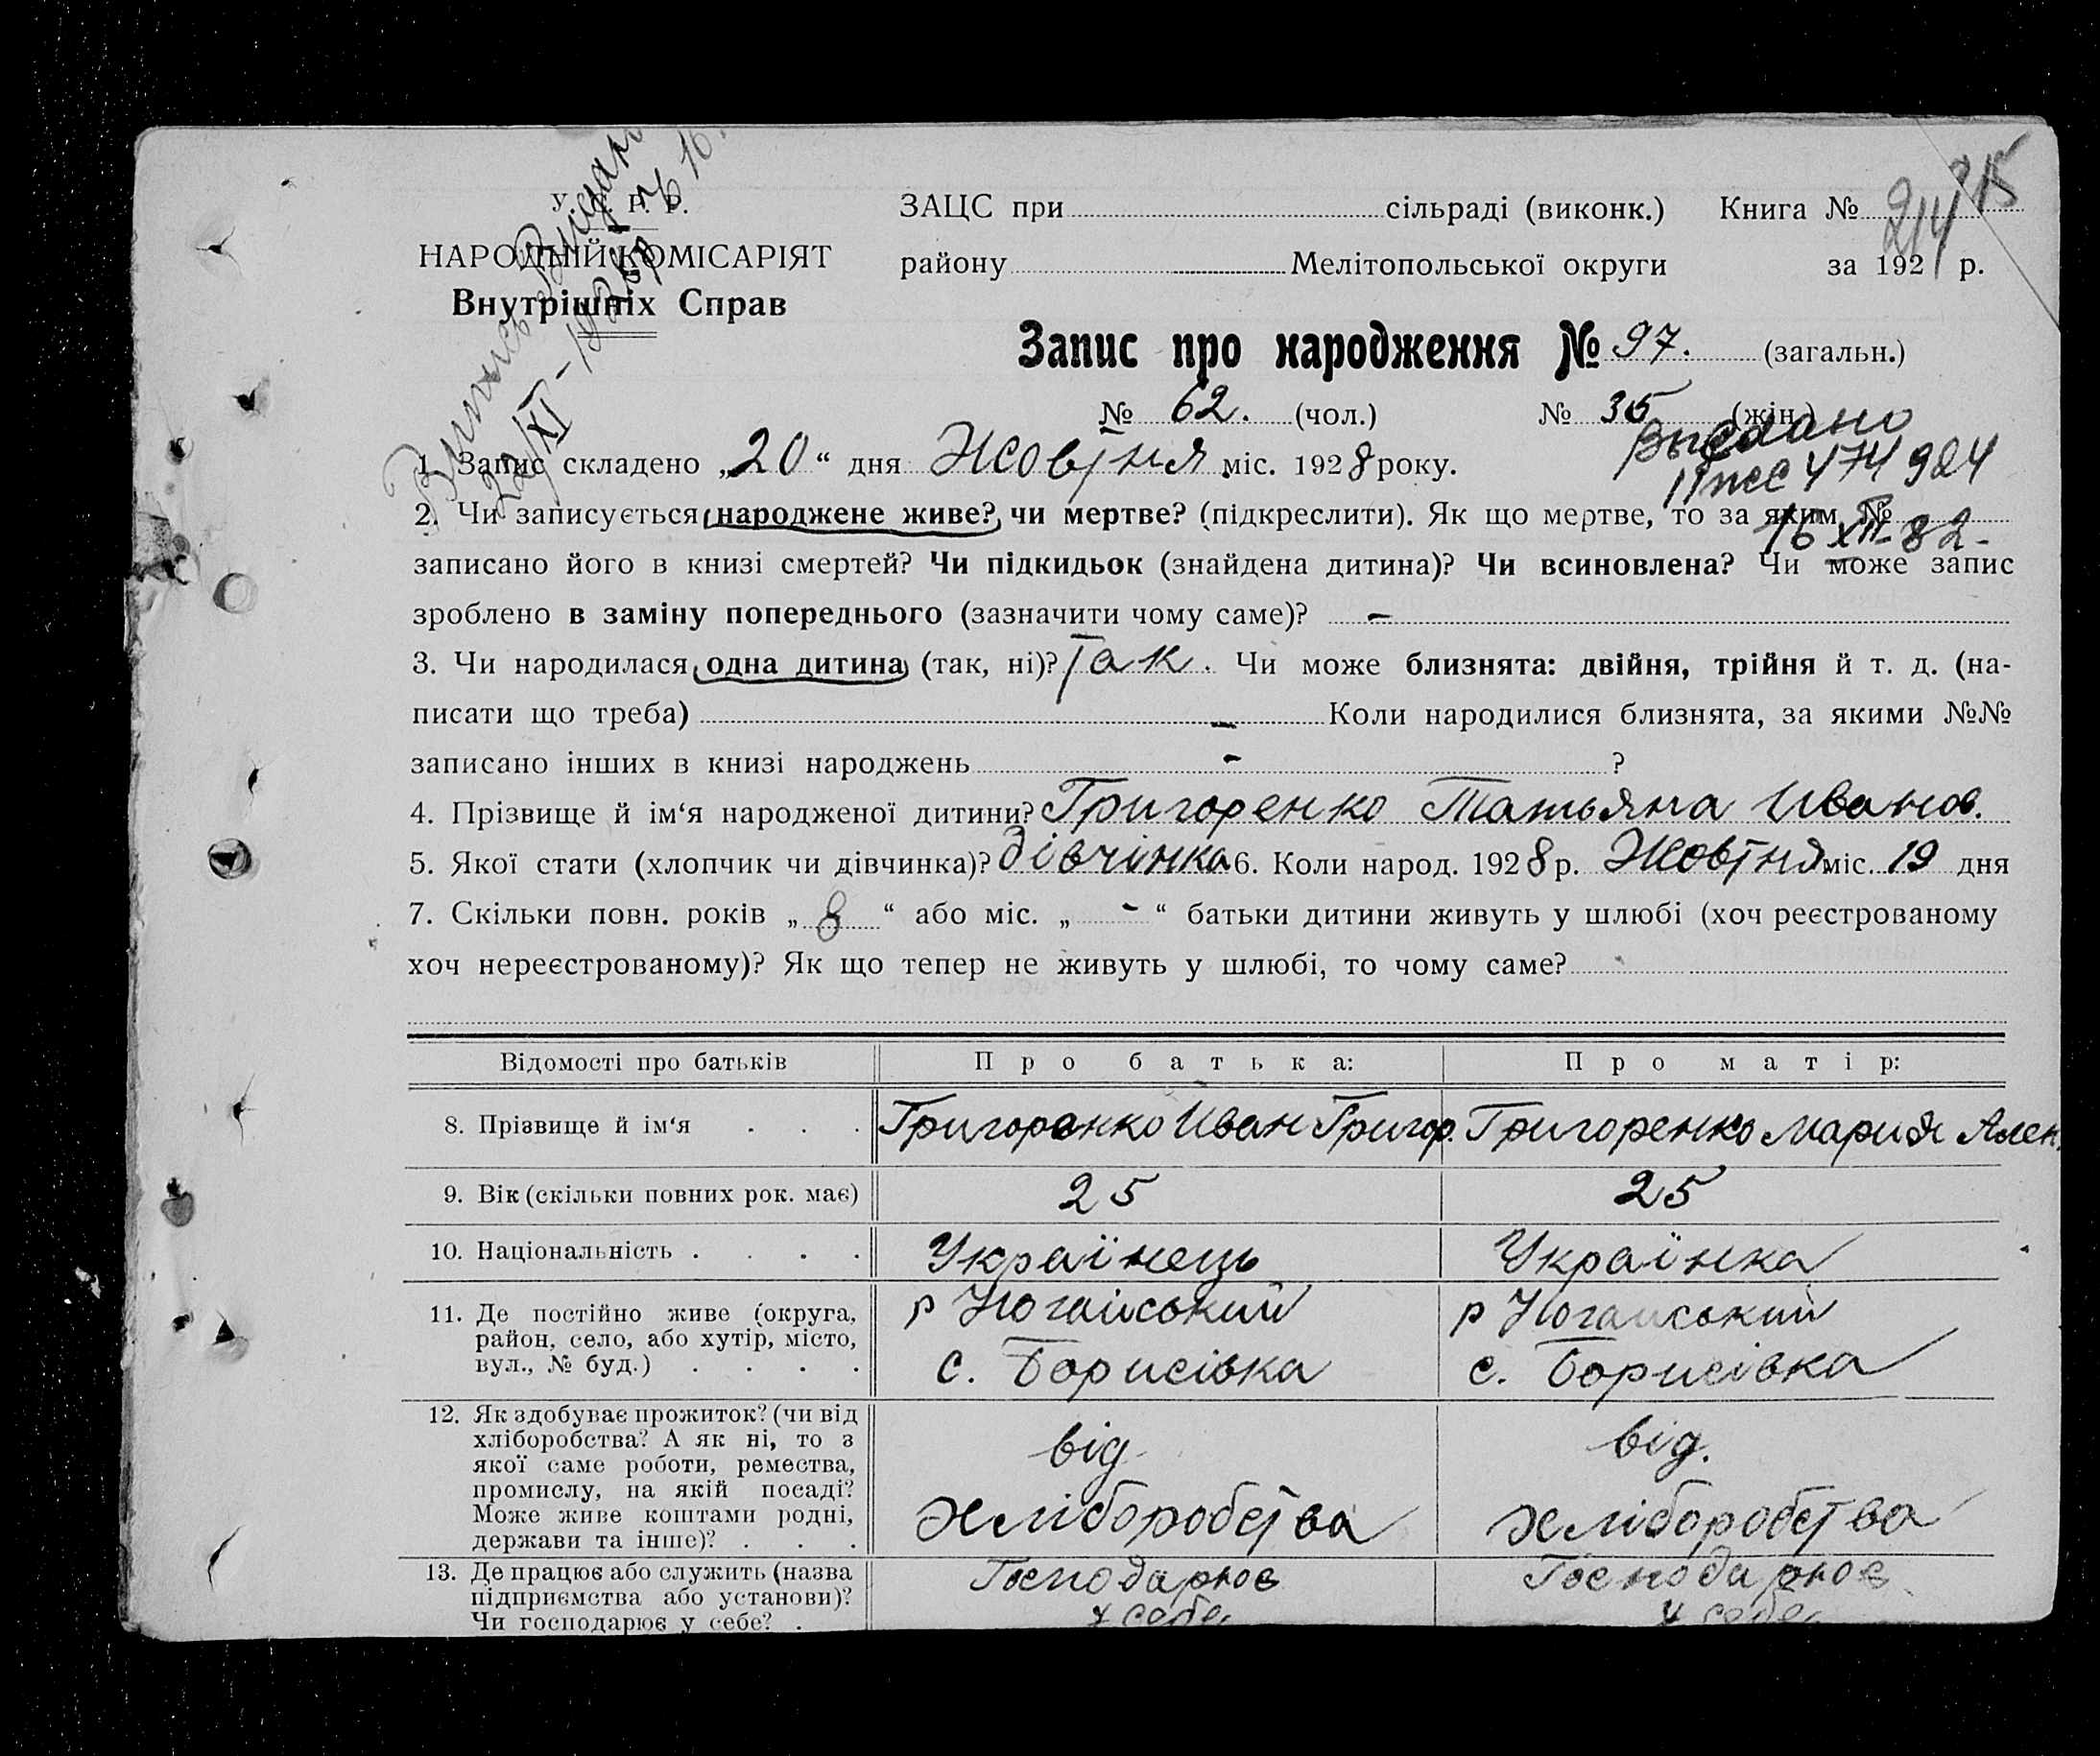 У. С. Р. Р.
НАРОДНІЙ КОМІСАРІЯТ
Внутрішніх Справ
Випись Видана
22/XI-1928 р
ЗАЦС при сільраді (виконк.) Книга №
району Мелітопольської округи за 192 р.
214 215
Запис про народження № 97. (загальн.)
№ 62. (чол.) № 35 (жін.)
выдано
474924
16 XII-82-
1. Запис складено „20“ дня Жовтня міс. 1928 року.
2. Чи записується народжене живе? чи мертве? (підкреслити). Як що мертве, то за яким №
записано його в книзі смертей? Чи підкидьок (знайдена дитина)? Чи всиновлена? Чи може запис
зроблено в заміну попереднього (зазначити чому саме)? –
3. Чи народилася одна дитина (так, ні)? Так. Чи може близнята: двійня, трійня й т. д. (на-
писати що треба) – Коли народилися близнята, за якими №№
записано інших в книзі народжень - ?
4. Прізвище й ім‘я народженої дитини? Григоренко Татьяна Иванов.
5. Якої стати (хлопчик чи дівчинка)? дівчінка 6. Коли народ. 1928 р. Жовтня міс. 19 дня
7. Скільки повн. років „8“ або міс. „-“ батьки дитини живуть у шлюбі (хоч реєстрованому
хоч нереєстрованому)? Як що тепер не живуть у шлюбі, то чому саме?
Відомості про батьків Про батька: Про матір:
8. Прізвище й ім‘я . . . Григоренко Иван Григор. Григоренко Мария Ален.
9. Вік (скільки повних рок. має) 25 25
10. Національність . . . . Українець Українка
11. Де постійно живе (округа,
район, село, або хутір, місто,
вул., № буд.) . . . .
р Ногайський
с. Борисівка
р Ногайський
с. Борисівка
12. Як здобуває прожиток? (чи від
хліборобства? А як ні, то з
якої саме роботи, ремества,
промислу, на якій посаді?
Може живе коштами родні,
держави та інше)? . . .
від
хліборобства
від.
хліборобства
13. Де працює або служить (назва
підприємства або установи)?
Чи господарює у себе? .
Господарює
у себе
Господарює
у себе